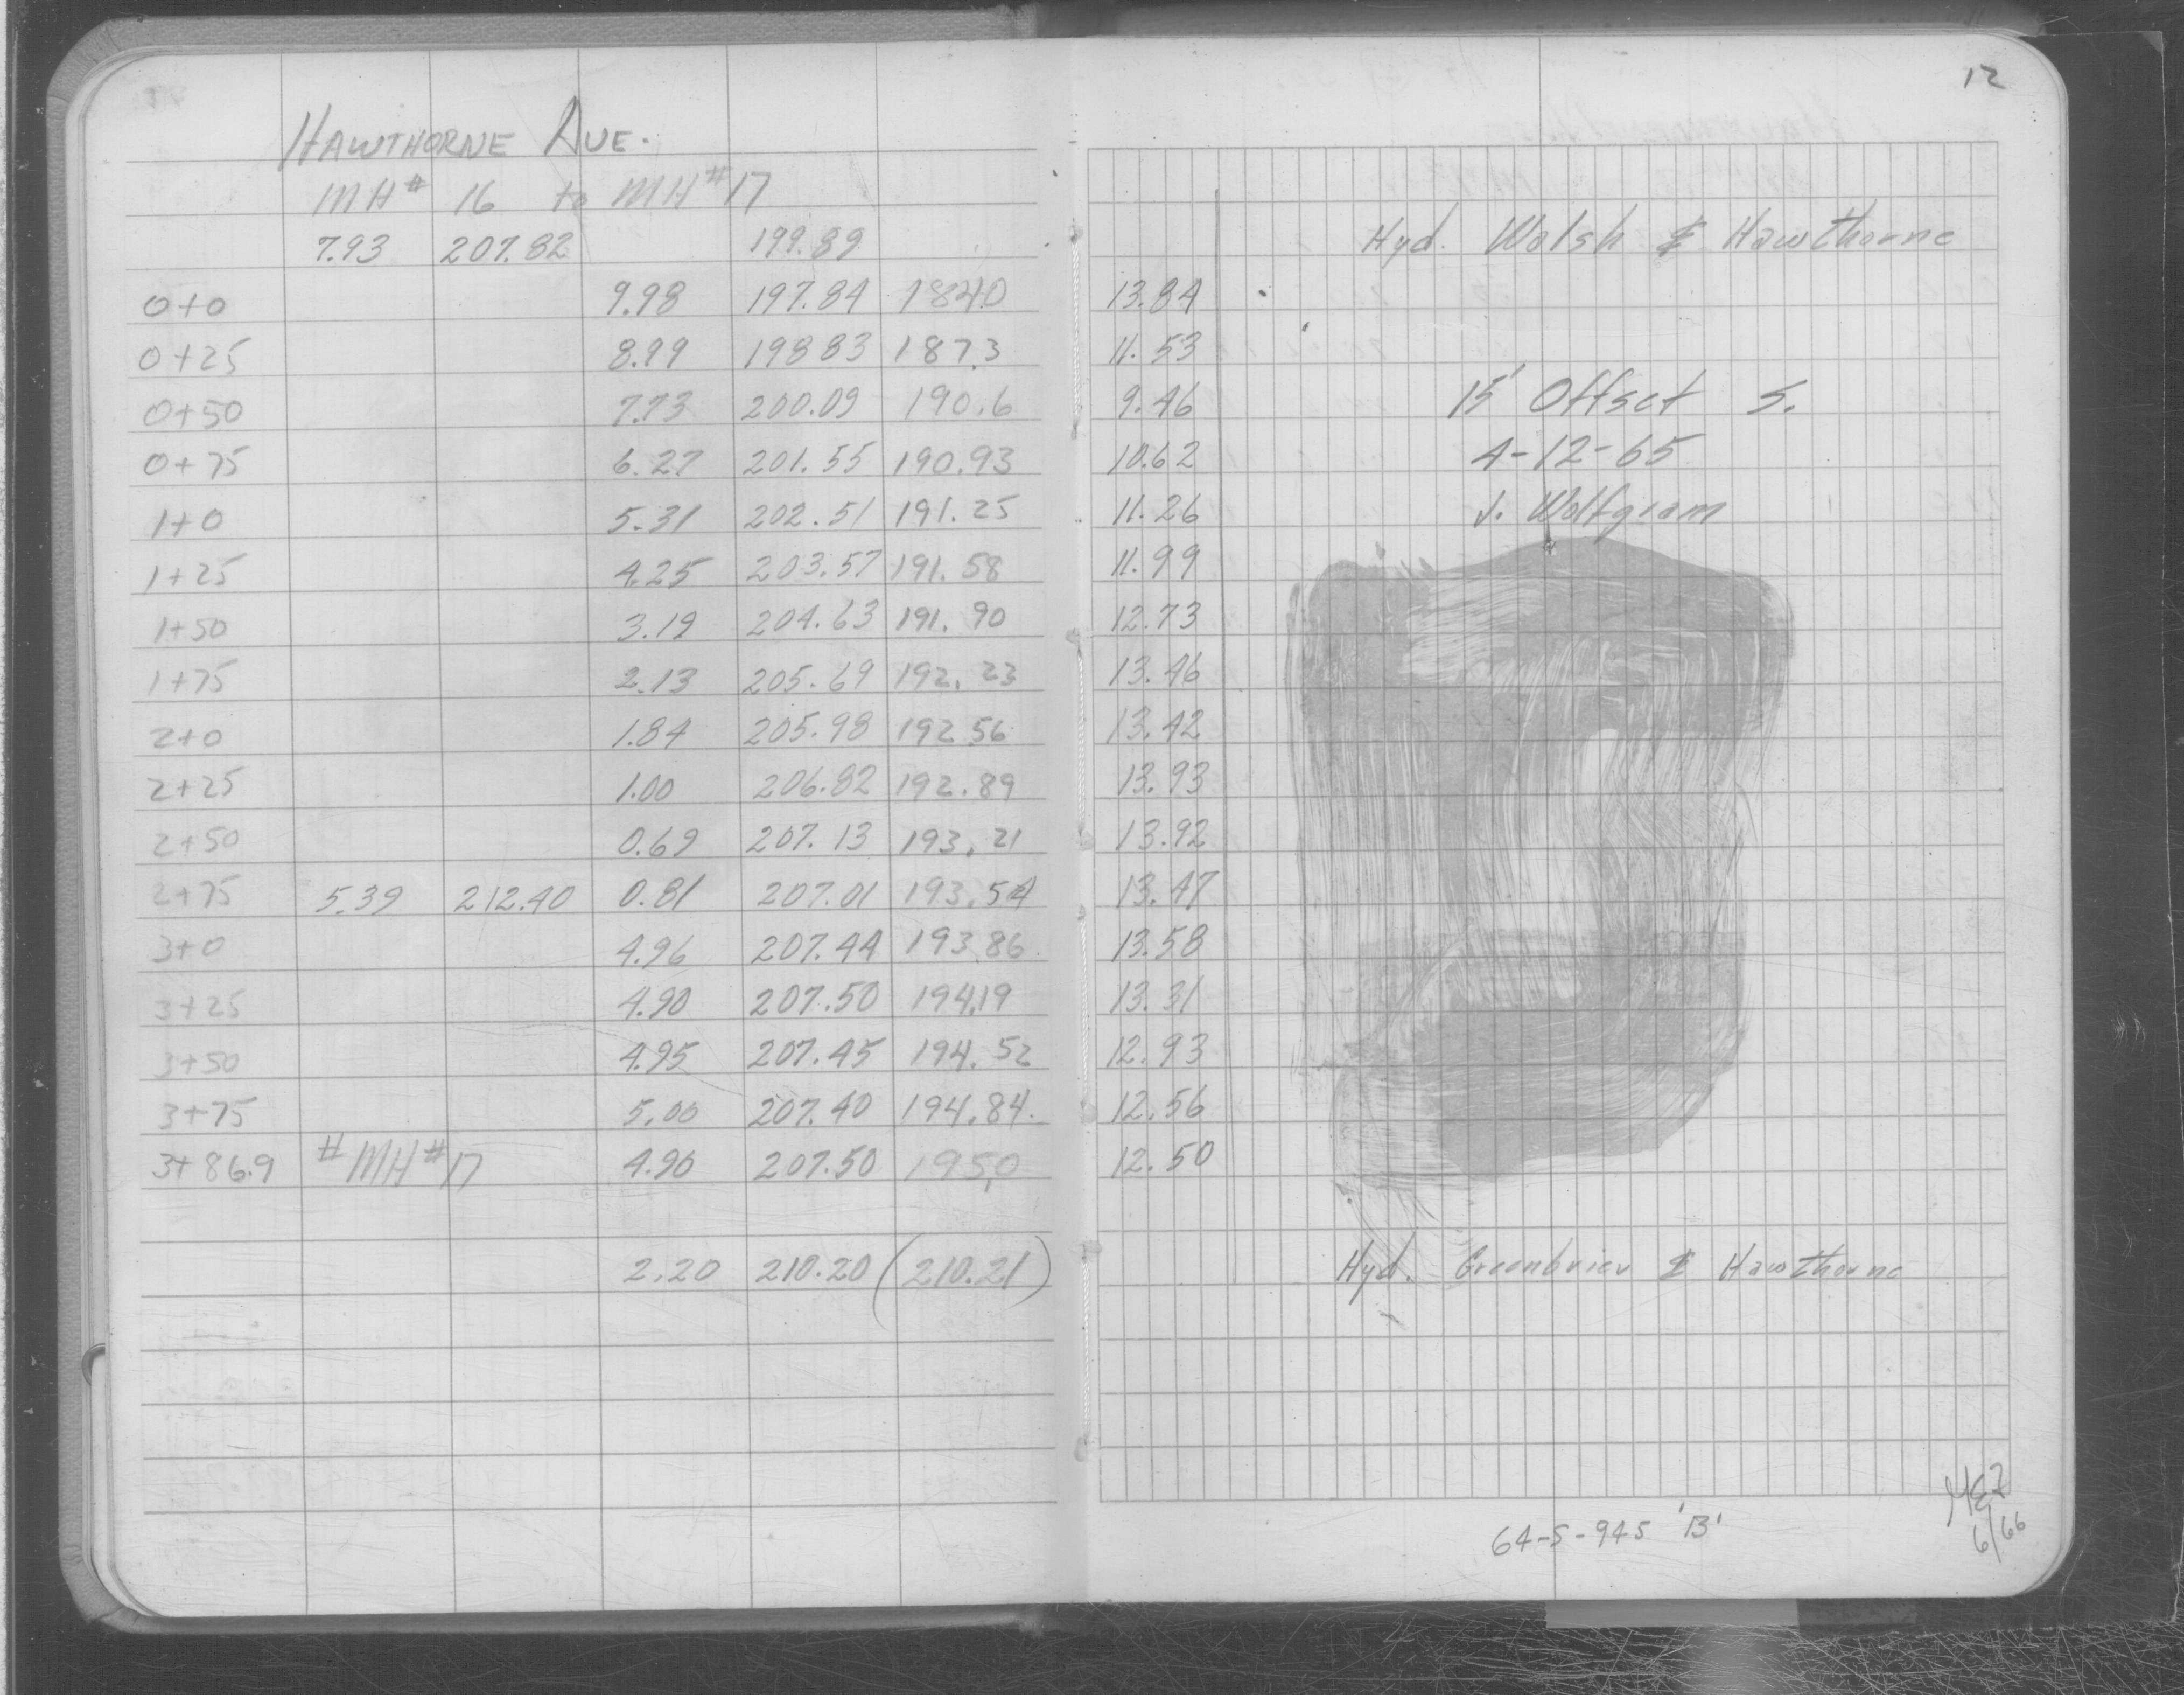 12
HAWTHORNE AVE.
MH# 16 to MH#17
7.93 207.82 199.89 Hyd. Walsh & Hawthorne
0+0 9.98 197.84 184.0 13.84
0+25 8.99 198 83 187.3 11.53
0+50 7.73 200.09 190.6 9.46 15' Offset S.
0+75 6.27 201.55 190.93 10.62 4-12-65
1+0 5.31 202.51 191.25 11.26 J. Wolfgram
1+25 4.25 203.57 191.58 11.99
1+50 3.19 204.63 191.90 12.73
1+75 2.13 205.69 192.23 13.46
2+0 1.84 205.98 192 56 13.42
2+25 1.00 206.82 192.89 13.93
2+50 0.69 207.13 193.21 13.92
2+75 5.39 212.40 0.81 207.01 193.54 13.47
3+0 4.96 207.44 193.86 13.58
3+25 4.90 207.50 194.19 13.31
3+50 4.95 207.45 194.52 12.93
3+75 5.00 207.40 194.84 12.56
3+86.9 #MH#17 4.90 207.50 195.0 12.50
2.20 210.20 (210.21) Hyd. Greenbrier & Hawthorne
64-5-945 'B'
6/66